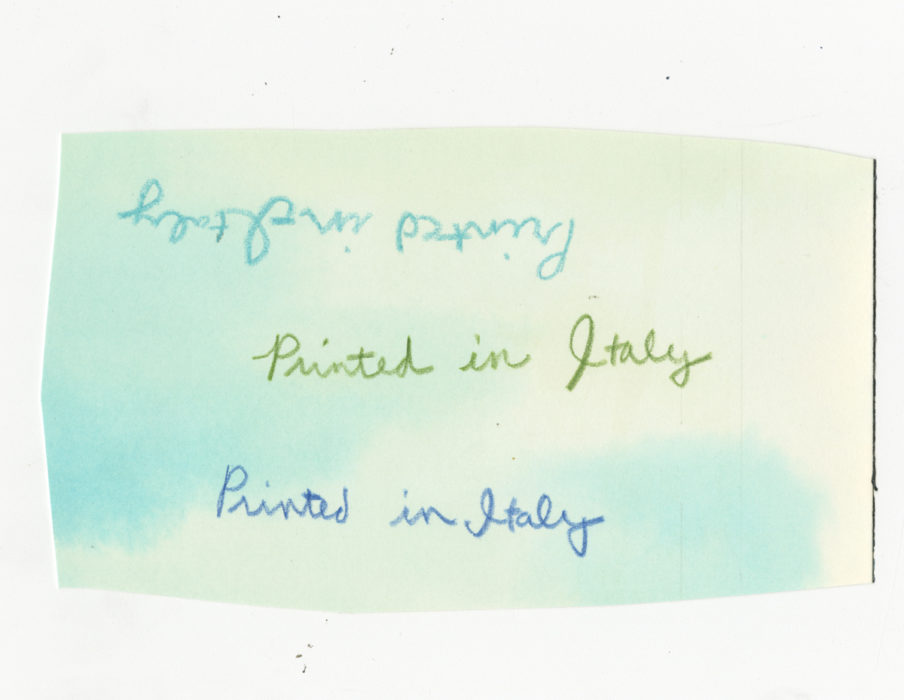 Printed in Italy
Printed in Italy
Printed in Italy